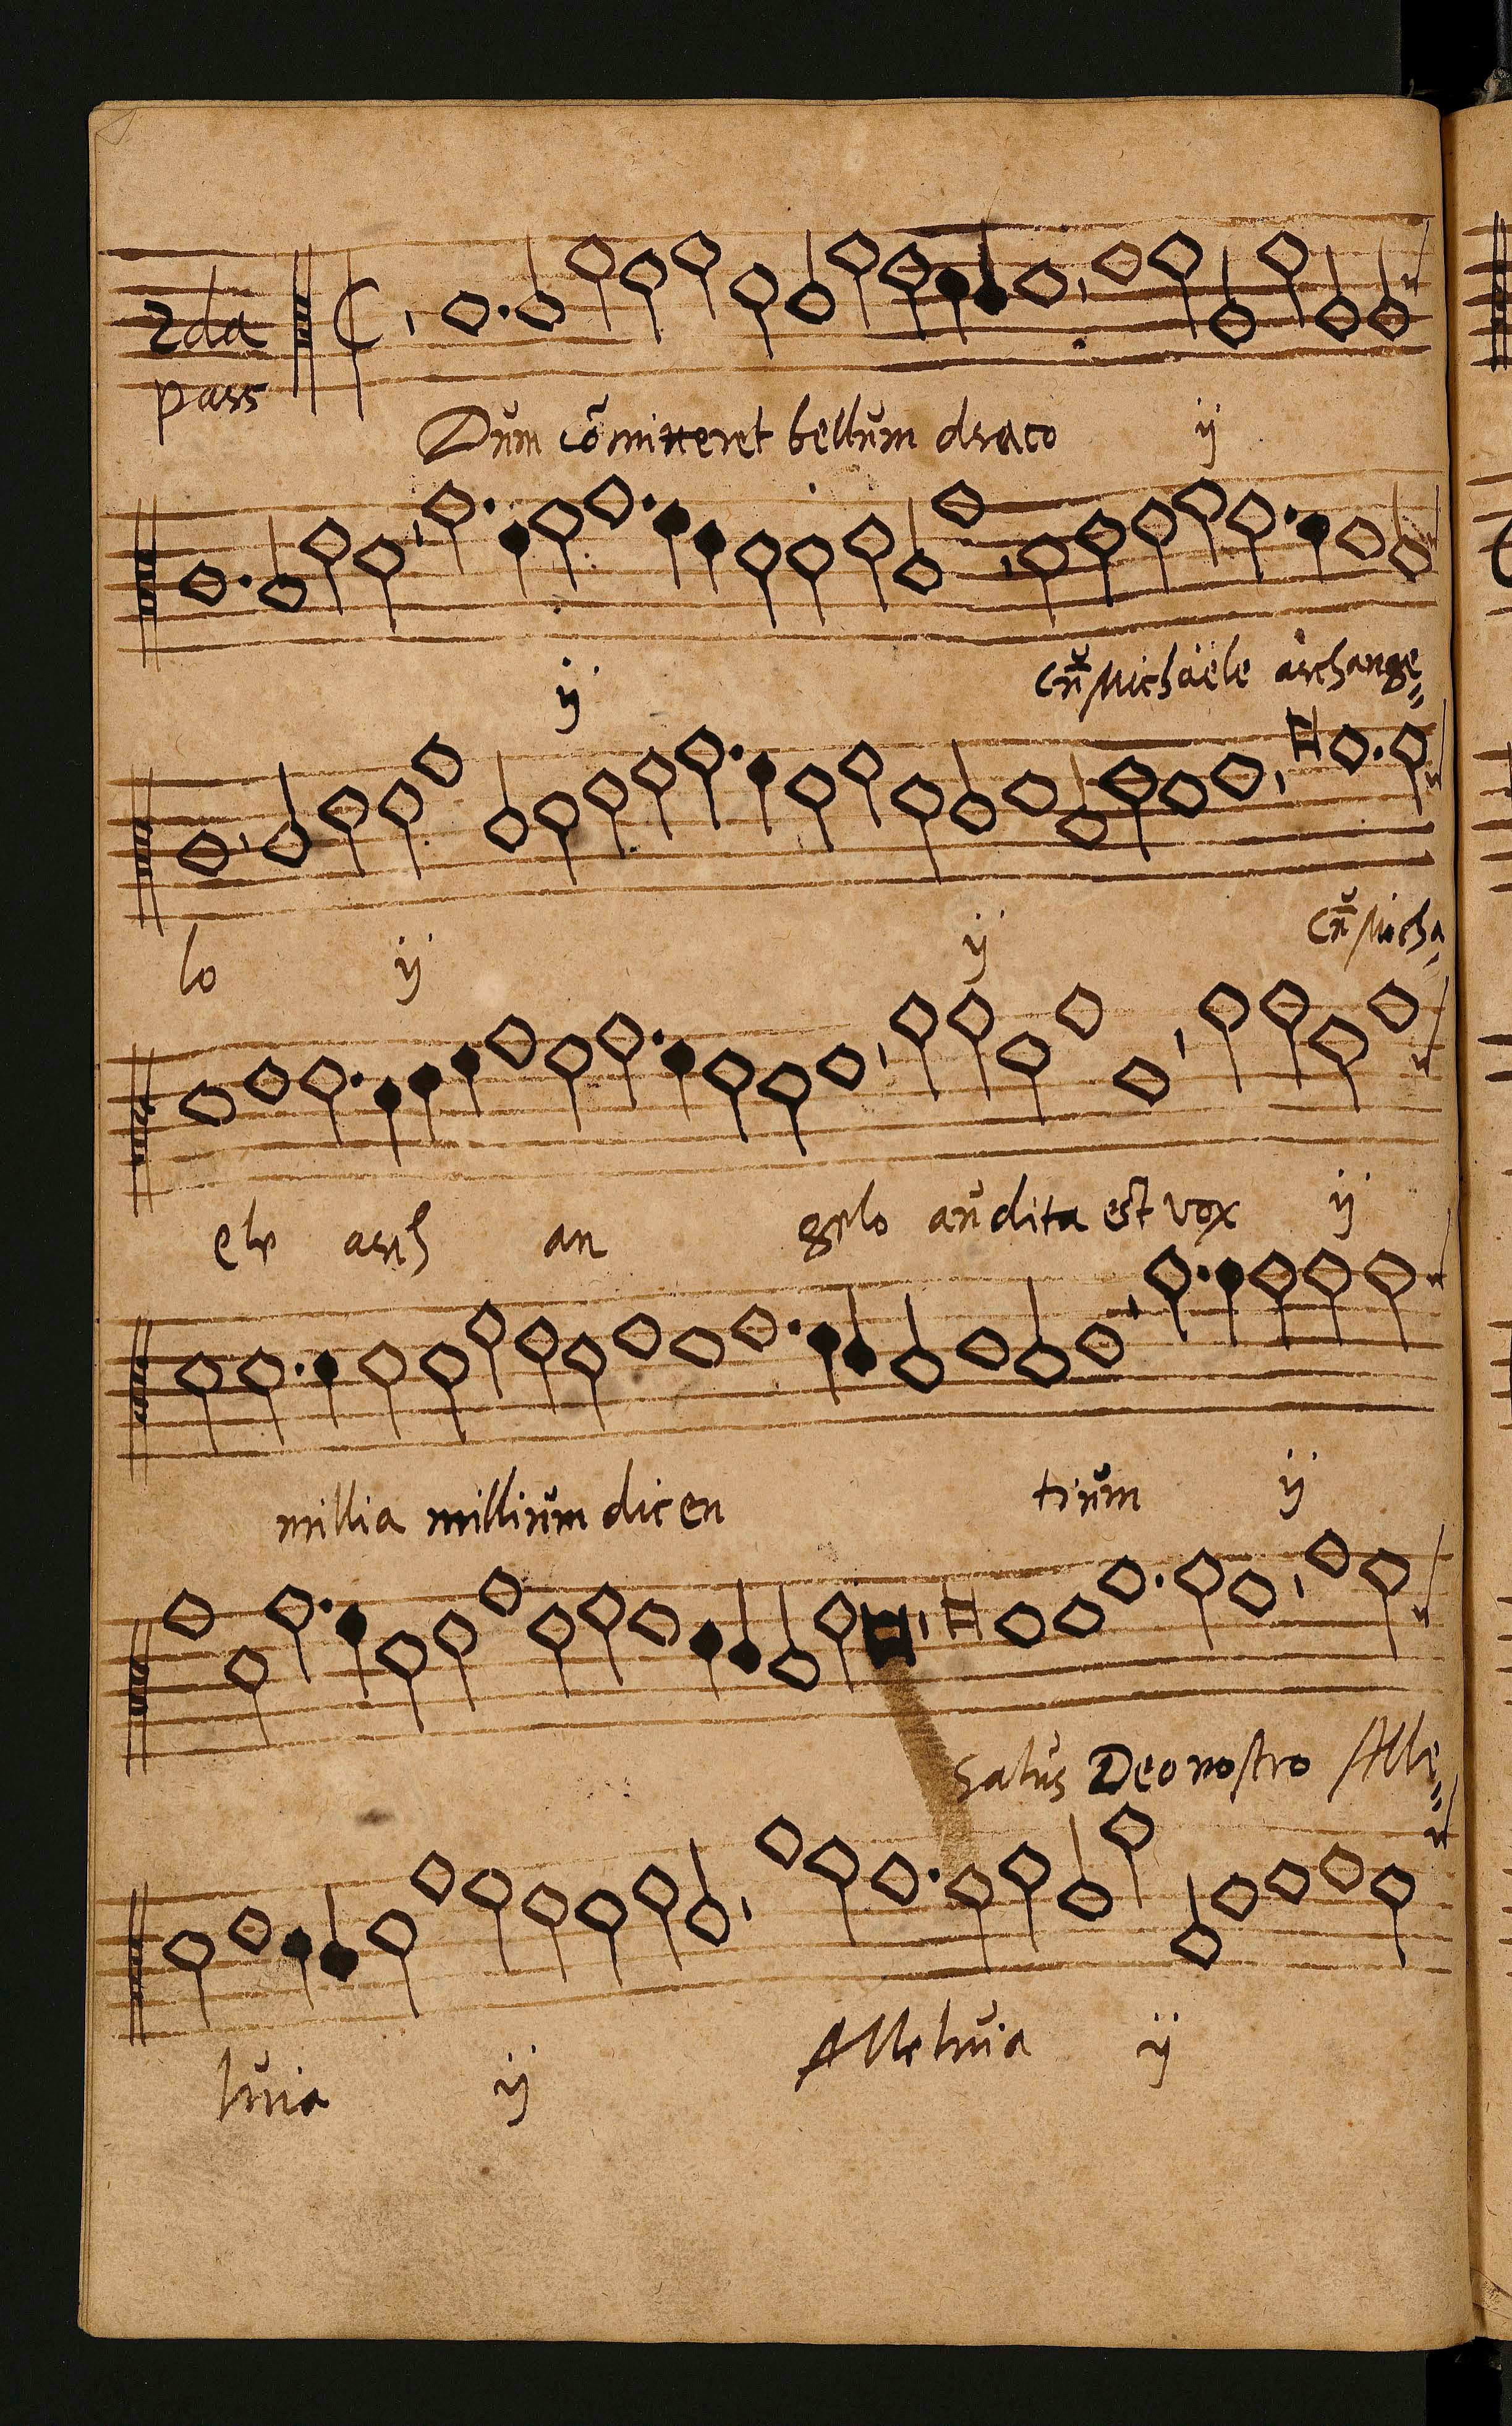 2da
pars
Dum cõmitteret bellum draco ij
ij Cũ Michaële archange
lo ij ij Cũ Micha
ele arch an gelo audita est vox ij
millia millium dicen tium ij
Salus Deo nostro Alle
luia ij Alleluia ij